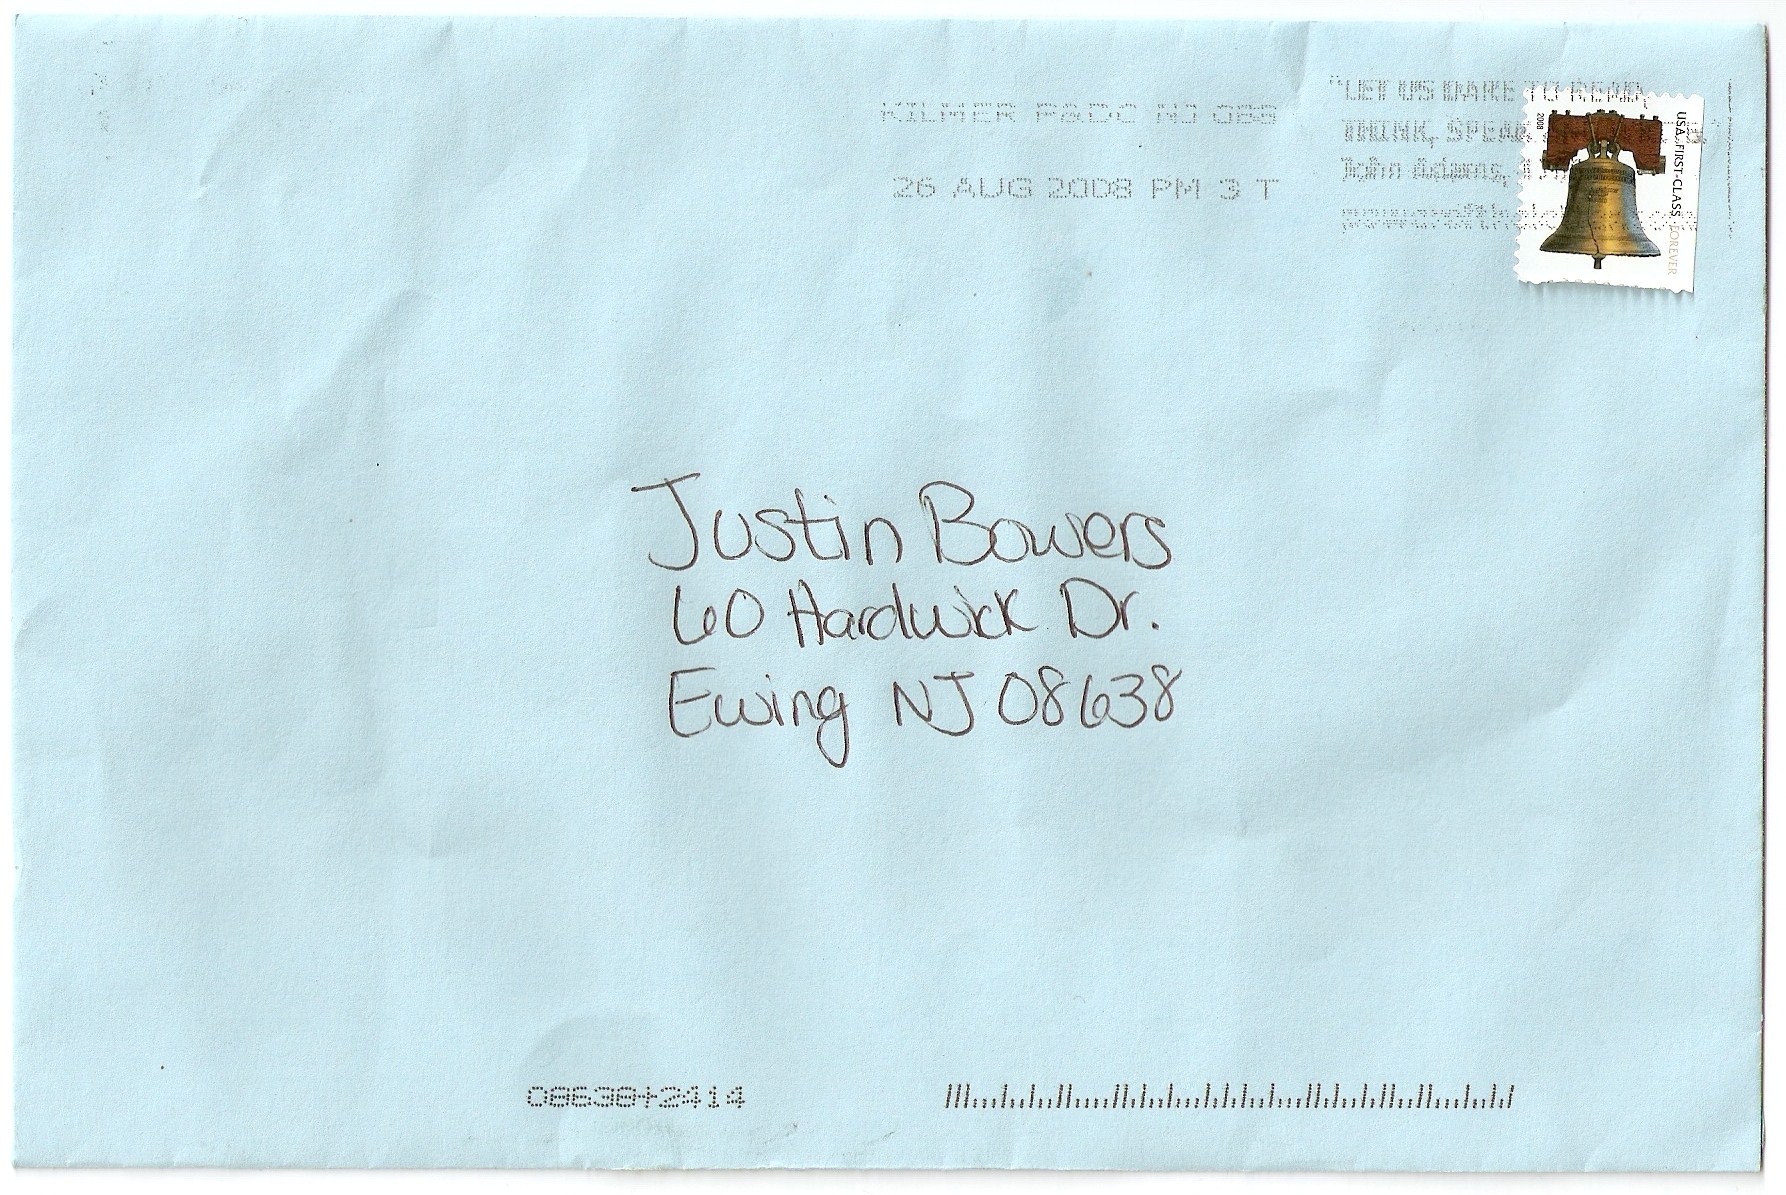 KILMER P&DC NJ 088
26 AUG 2008 PM 3 T
"LET US DARE TO READ,
THINK, SPEAK
John Adams,
2008
USA FIRST-CLASS FOREVER
Justin Bowers
60 Hardwick Dr.
Ewing NJ 08638
08638+2414